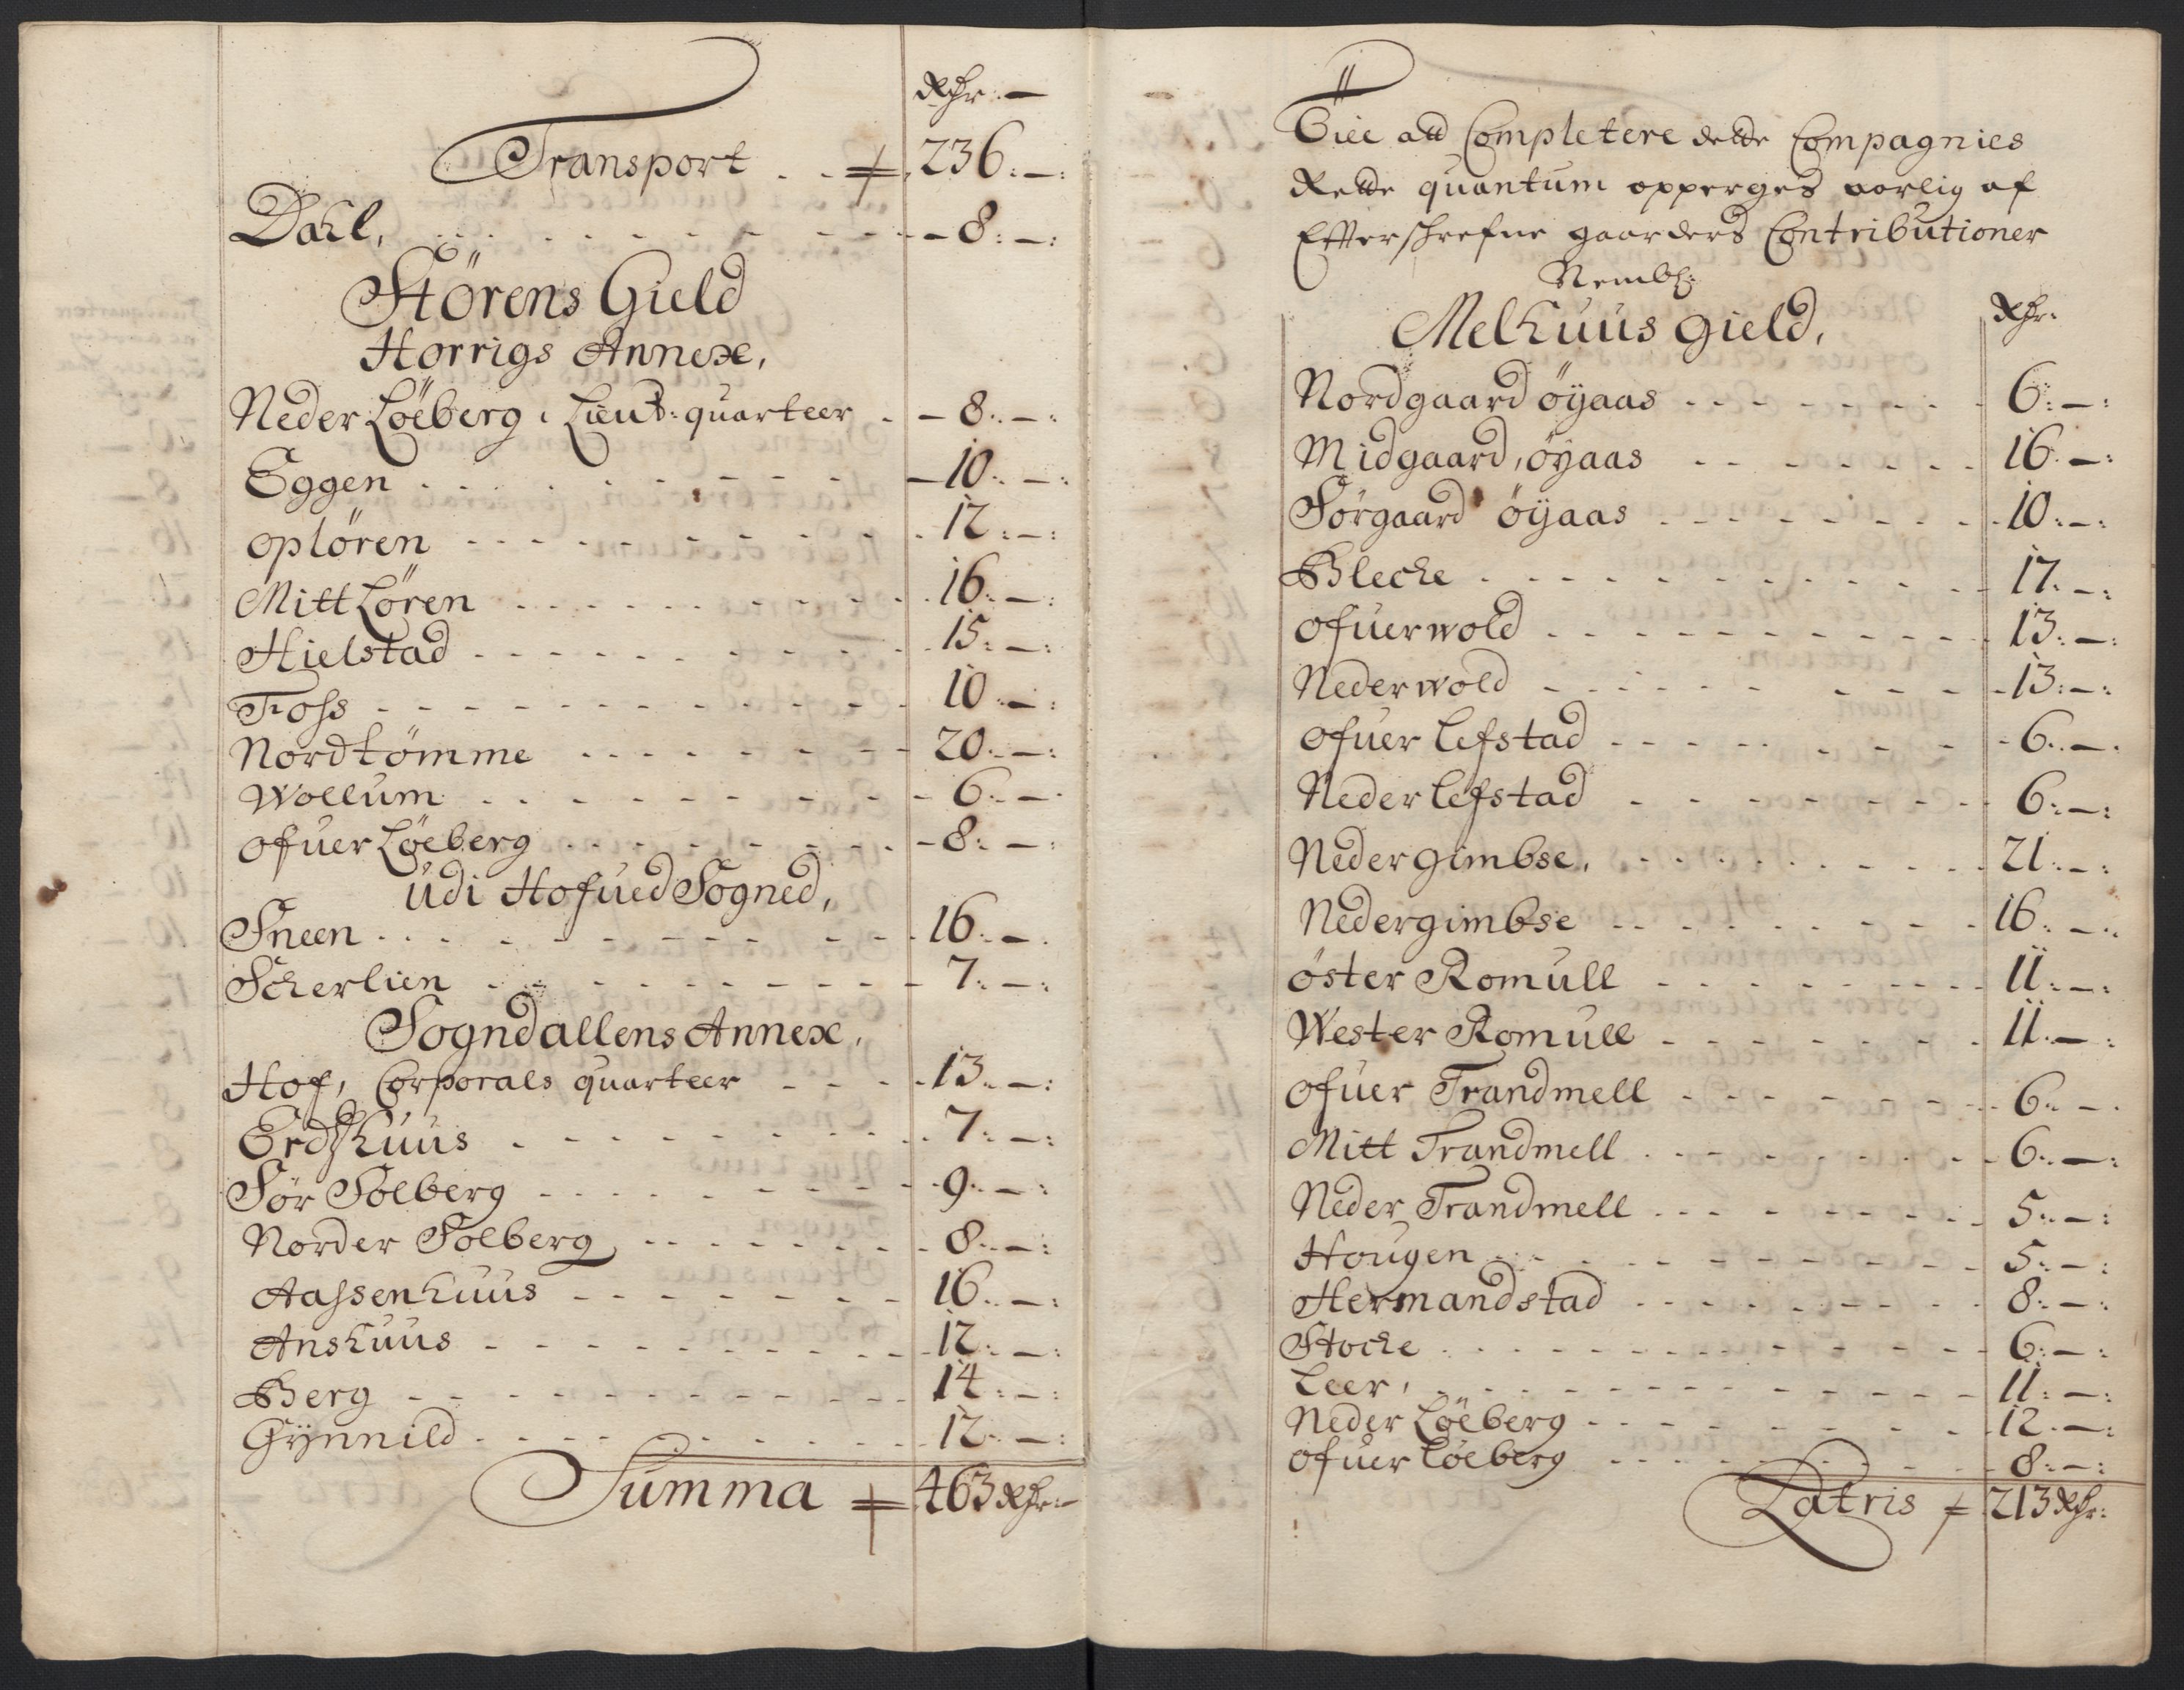 Rdr:—
Transport . . 236:—:
Dahl, — 8:—:
Störens Gield
Horrigs Annexe,
Neder Löeberg, Lieut: quarteer — 8:—:
Eggen — 10:—:
oplören 12:—:
Mitt Lören 16:—:
Hielstad 15:—:
Foss 10:—:
Nordtömme 20:—:
Wollum 6:—
ofuer Löeberg — 8:—:
Udi Hofued Sogned,
Sneen 16:—.
Scherlien 7:—:
Sogndallens Annex,
Hof, Corporals quarteer 13:—:
Erdshuus 7:—:
Sör Solberg 9:—:
Norder Solberg 8:—:
Aassenhuus 16:—:
Anshuus 12:—:
Berg 14:—:
Gÿnnild 12:—:
Summa 463 Rdr:—
Till att Completere dette Compagnies
Rette quantum opperges aarlig af
Efterschrefne gaarders Contributioner
Nembl:
Melhuus gield,
Rdr:
Nordgaard öÿaas 6:—:
Midgaard, öÿaas 16:—:
Sörgaard öÿaas 10:—:
Blecke 17:—:
ofuerwold 13:—:
Nederwold 13:—:
ofuer Lefstad 6:—.
Neder Lefstad 6:—:
Nedergimbse, 21:—:
Nedergimbse 16:—:
öster Romull 11:—:
Wester Romull 11:—:
ofuer Trandmell 6:—.
Mitt Trandmell 6:—:
Neder Trandmell 5:—:
Hougen 5:—:
Hermandstad 8:—:
Stocke 6:—:
Leer, 11:—:
Neder Löeberg 12:—:
ofuer Löeberg 8:—:
Latris 213 Rdr: